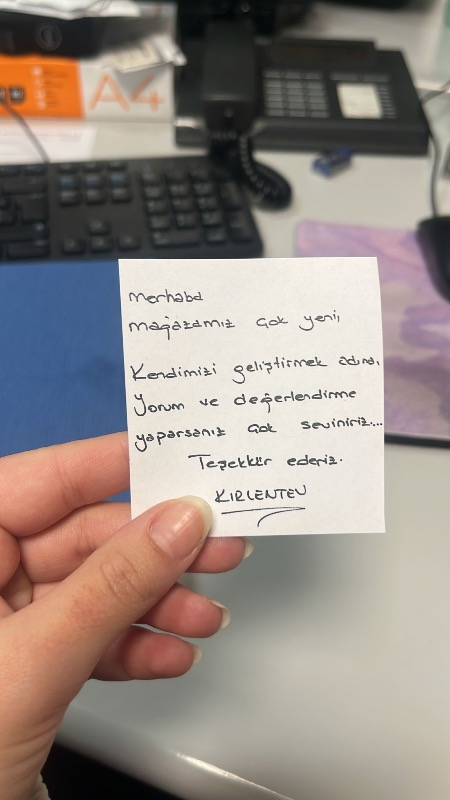 A4
Merhaba
mağazamız çok yeni,
Kendimizi geliştirmek adına,
Yorum ve değerlendirme
yaparsanız çok seviniriz...
Teşekkür ederiz.
KIRLENTEV